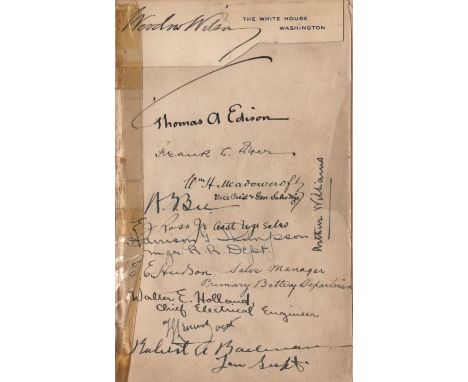 Woodrow Wilson
THE WHITE HOUSE
WASHINGTON
Thomas A Edison
Frank L. Dyer
Wm H. Meadowcroft
Vice Prest & Gen. Sales Mgr
Arthur Williams
E J Ross Jr Asst Mgr Sales
Harrison G Thompson
Mgr. R.R. Dept
E E Hudson Sales Manager
Primary Battery Department
Walter E. Holland
Chief Electrical Engineer
Robert A Bachman
Gen Supt.